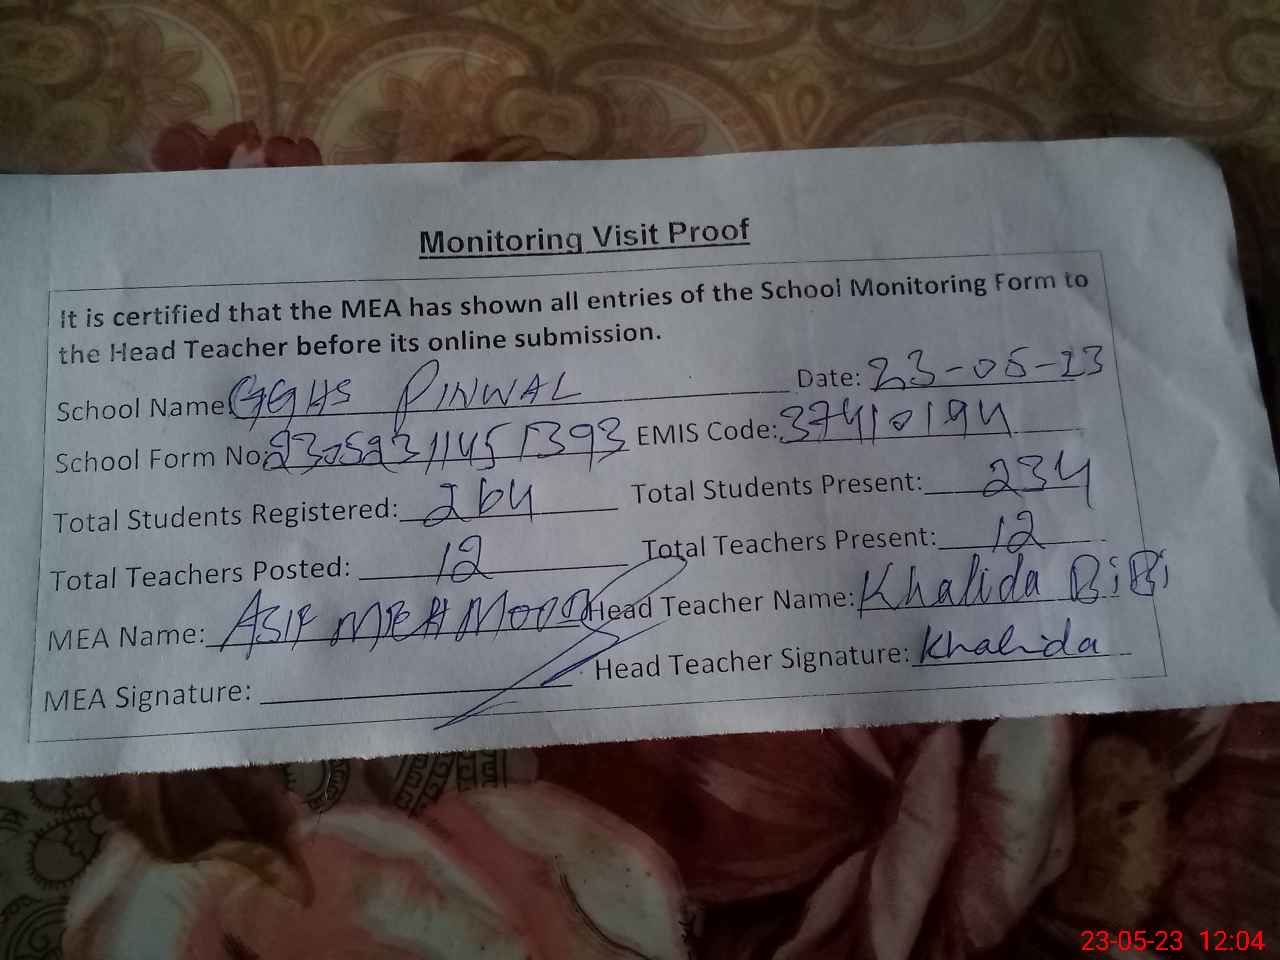 Monitoring Visit Proof
It is certified that the MEA has shown all entries of the School Monitoring Form to
the Head Teacher before its online submission.
School Name GGHS PINWAL Date: 23-05-23
School Form No: 23052311451393 EMIS Code: 37410194
Total Students Registered: 264 Total Students Present: 234
Total Teachers Posted: 12 Total Teachers Present: 12
MEA Name: ASIF MEHMOOD Head Teacher Name: Khalida BiBi
MEA Signature: Head Teacher Signature: Khalida
23-05-23 12:04